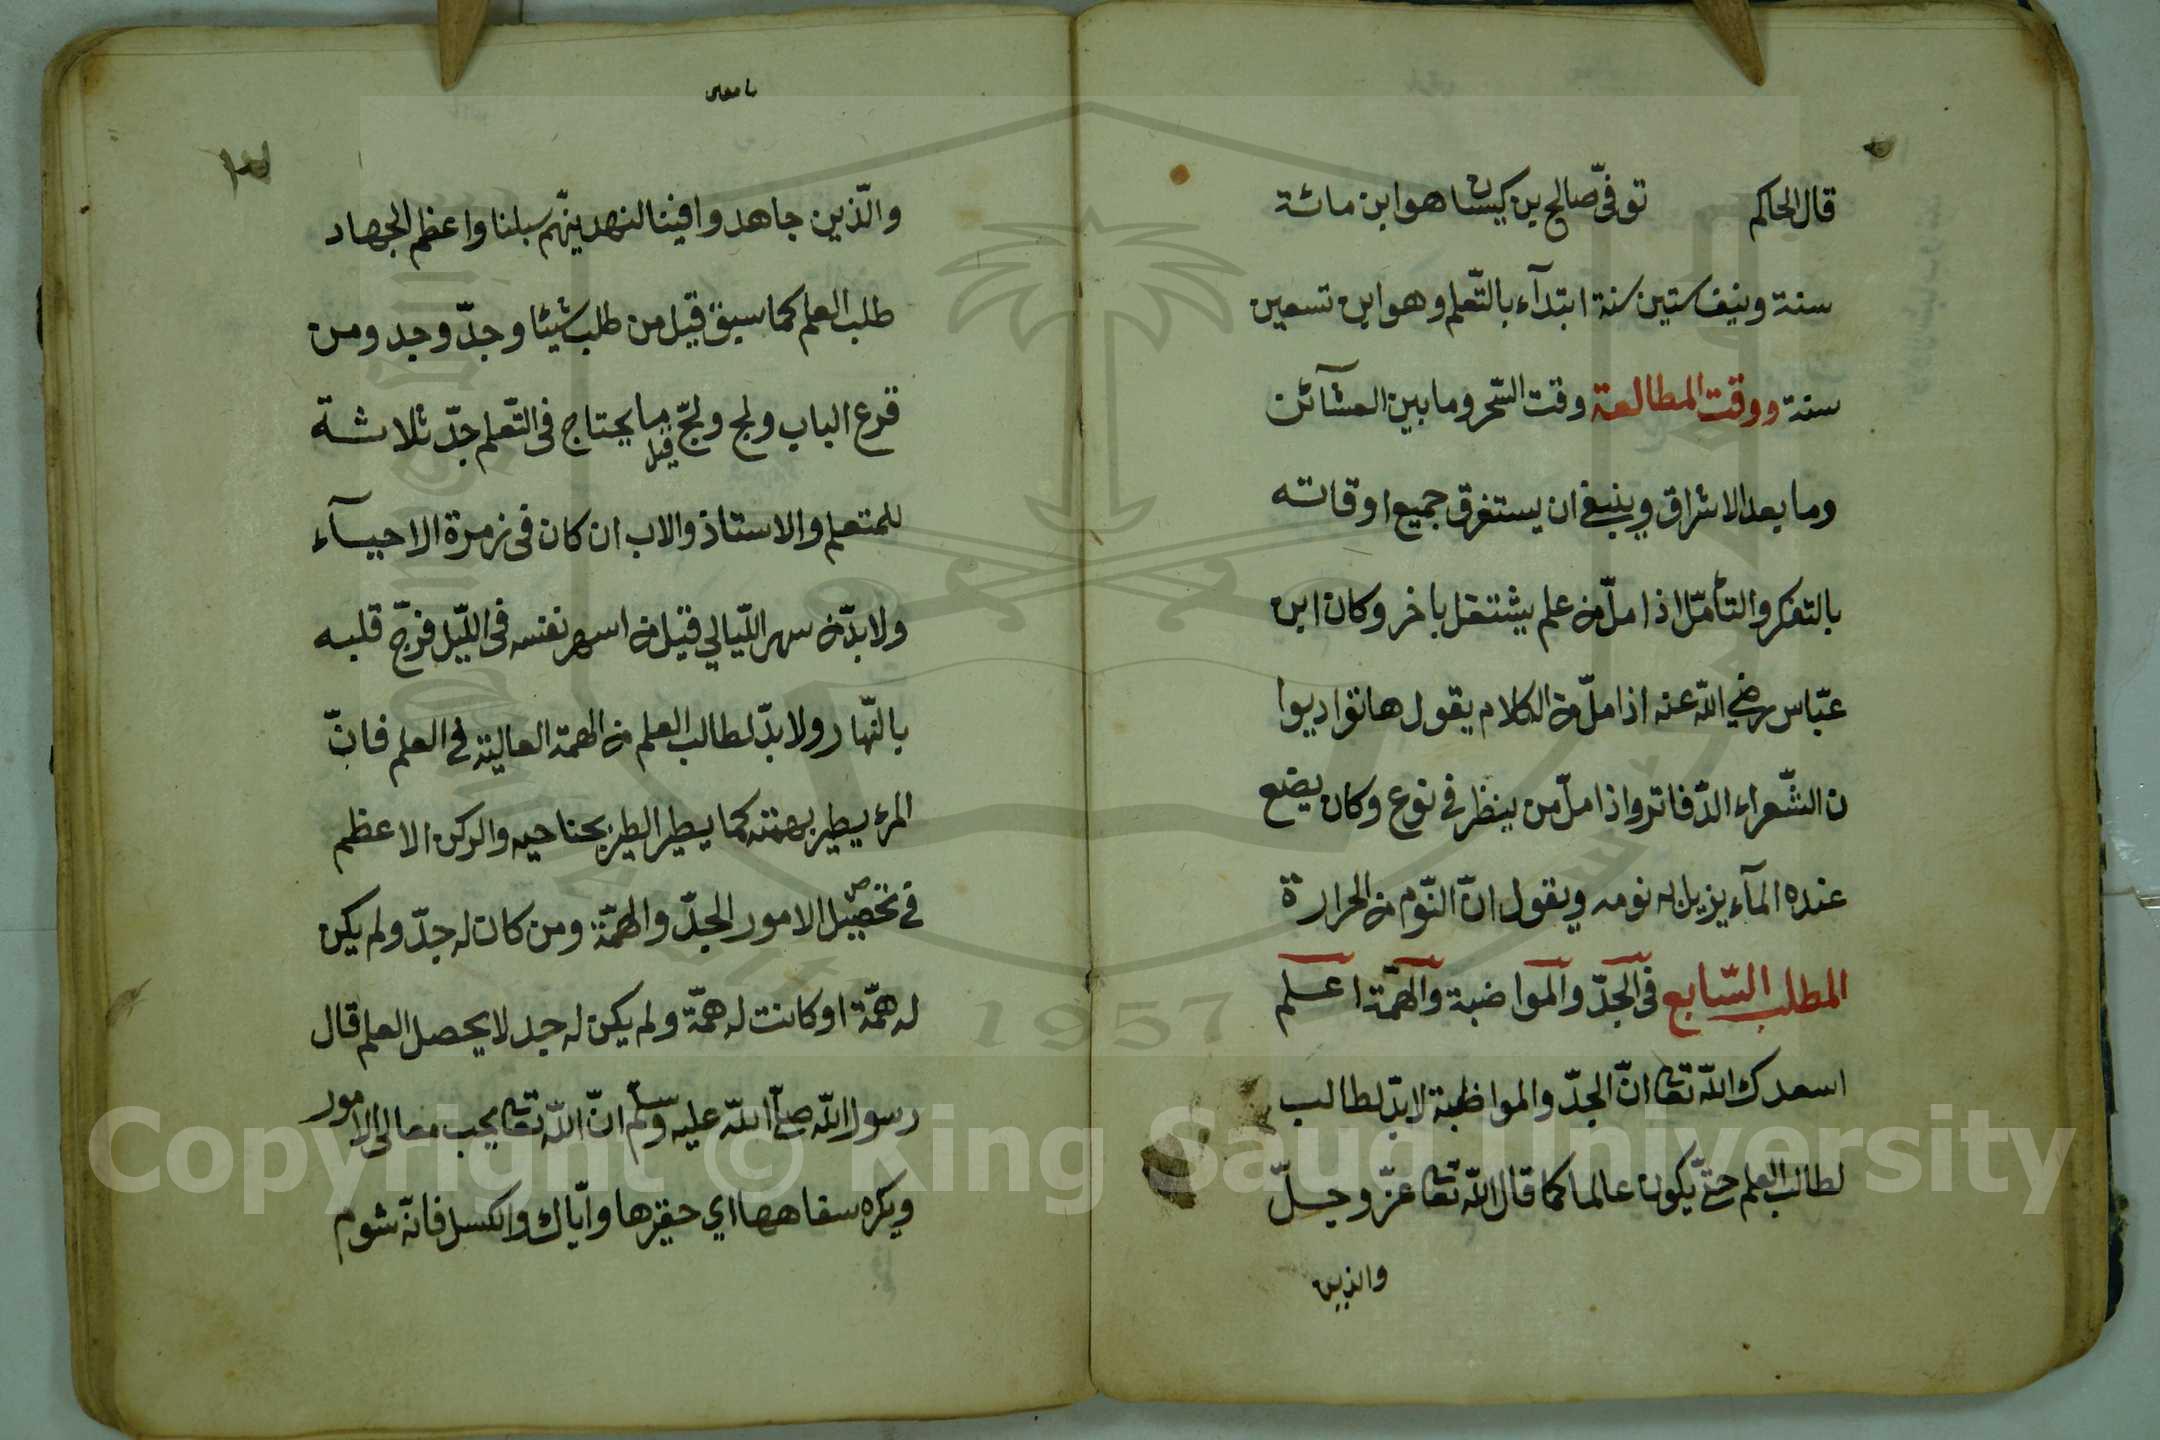 قال الحاكم توفّى صالح بن كيسان هو ابن مائة
سنة ونيف ستين سنة ابتدآء بالتّعلم وهو ابن تسعين
سنة ووقت المطالعة وقت السّحر وما بين العشآئن
وما بعد الاشراق وينبغي ان يستغرق جميع اوقاته
بالتفكر والتأمّل اذا ملّ من علم يشتغل باخر وكان ابن
عبّاس رضي اللّه عنه اذا ملّ من الكلام يقول هاتوا ديوا
ن الشّعراء الدّفاتر واذا ملّ من ينظر في نوع وكان يضع
عنده المآء يزيل له نومه ويقول انّ النّوم من الحرارة
المطلب السّابع فى الجدّ والمواضبة والهمّة اعلم
اسعدك اللّه تعا انّ الجدّ والمواظبة لابدّ لطالب
لطالب العلم حتّى يكون عالما كما قال اللّه تعا عزّ وجلّ
والذين
والّذين جاهدوا فينا لنهدينّهم سبلنا واعظم الجهاد
طلب العلم كما سبق قيل من طلب شيئا وجدّ وجد ومن
قرع الباب ولج ولجّ قيل ما يحتاج فى التّعلم جدّ ثلاثة
للمتعلم والاستاذ والاب ان كان فى زمرة الاحيآء
ولابدّ من سهر اللّيالي قيل من اسهر نفسه فى اللّيل فرّج قلبه
بالنّهار ولابدّ لطالب العلم من الهمة العالية في العلم فانّ
المرء يطير بهمته كما يطير الطير بجناحيه والركن الاعظم
في تحصيل الامور الجدّ والهمّة ومن كان له جدّ ولم يكن
له همّة او كانت له همّة ولم يكن له جد لا يحصل العلم قال
رسول اللّه صلّى اللّه عليه وسلّم انّ اللّه تعا يحب معالى الامور
ويكره سفاهها اي حقيرها وايّاك والكسل فانّه شوم
Copyright © King Saud University
1957